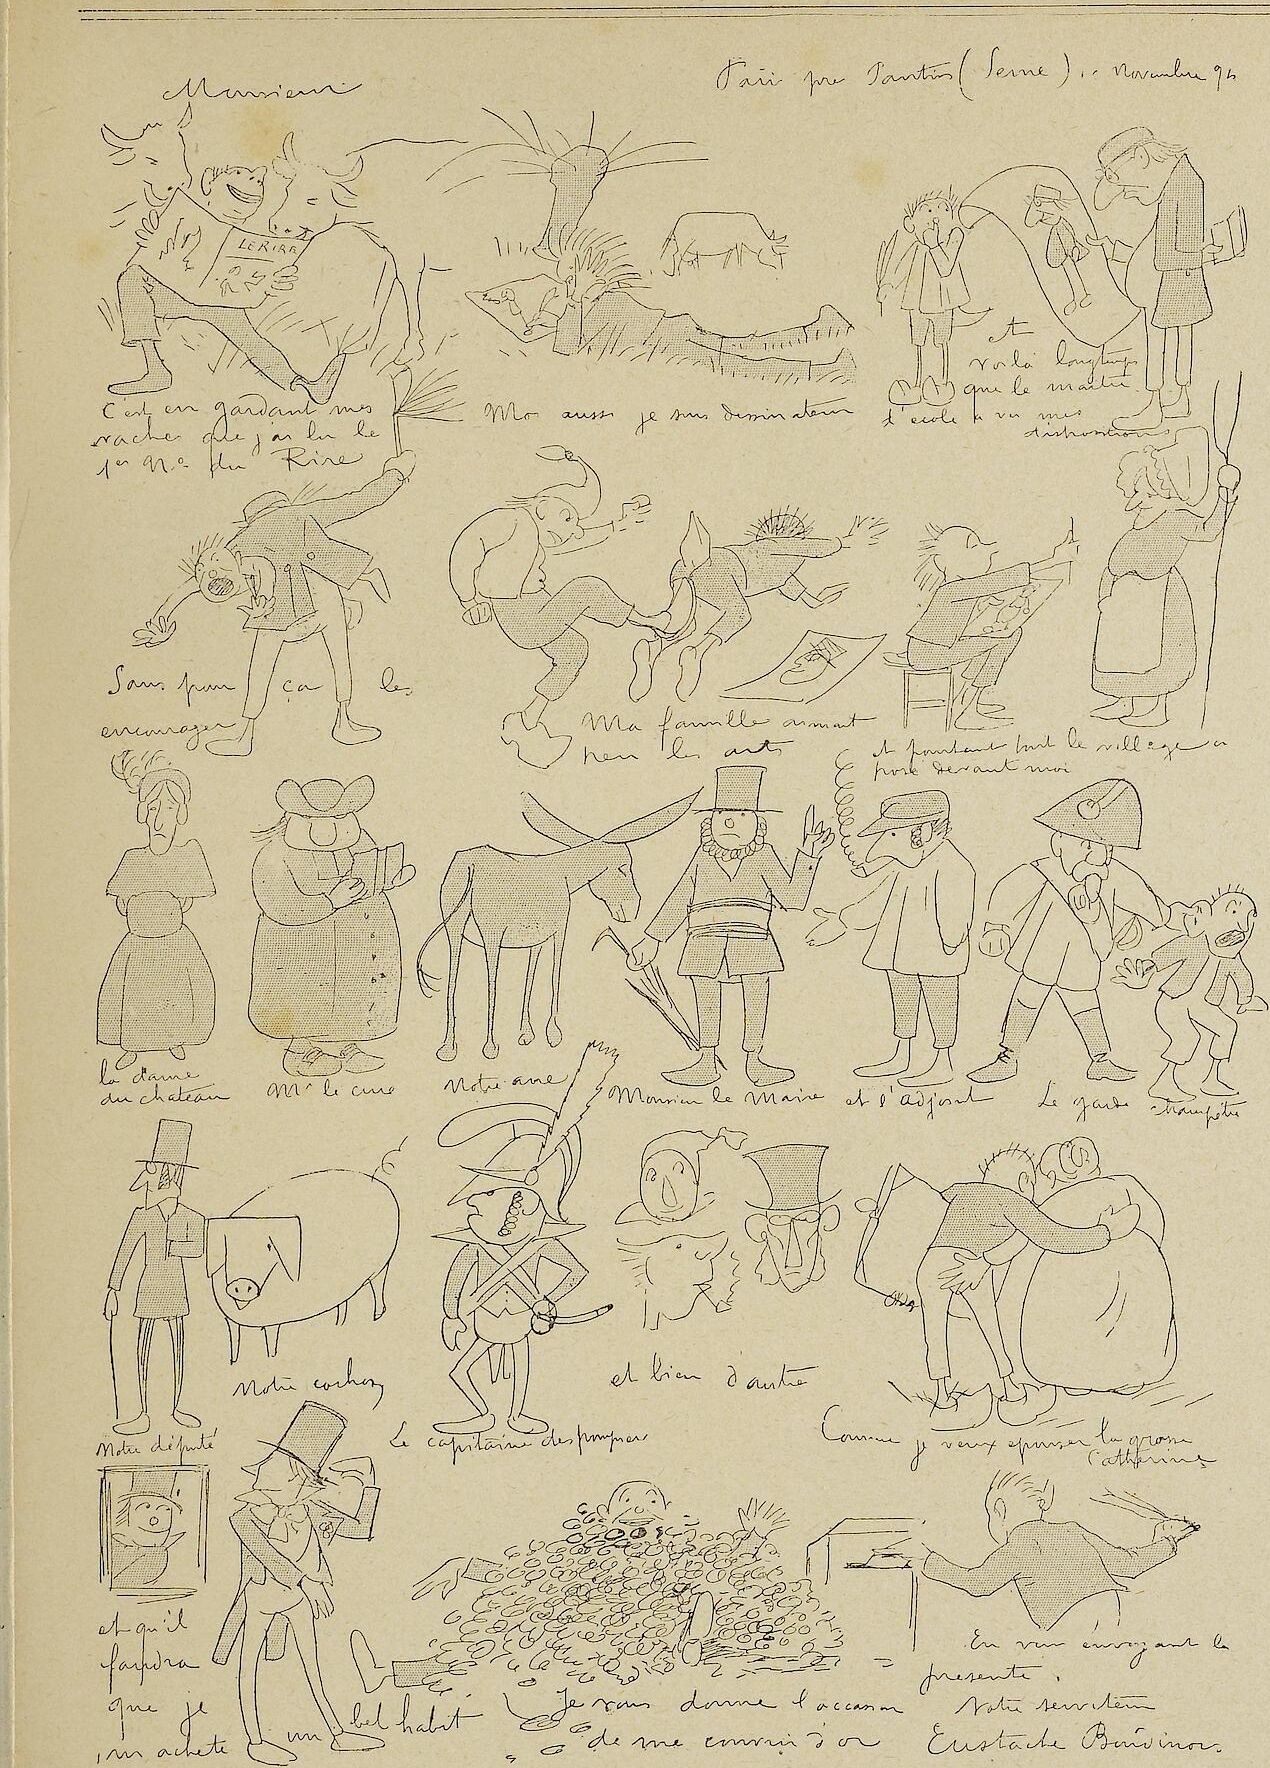 Monsieur
près Pantin (Seine) .. novembre 94
LE RIRE
C'est en gardant mes
vaches que j'ai lu le
1er No du Rire
Moi aussi je suis dessinateur
et
voilà longtemps
que le maître
d'école a vu mes
dispositions
Sans pour ça les
encourager
Ma famille aimant
peu les arts
et pourtant tout le village a
posé devant moi
la dame
du chateau
Mr le curé
Notre ane
Monsieur le Maire
et l'adjoint
Le garde champêtre
Notre député
Notre cochon
Le capitaine des pompiers
et bien d'autre
Comme je veux épouser la grosse
Catherine
et qu'il
faudra
que je
m'achète
un bel habit
Je vous donne l'occasion
de me couvrir d'or
En vous envoyant la
présente.
Votre serviteur
Eustache